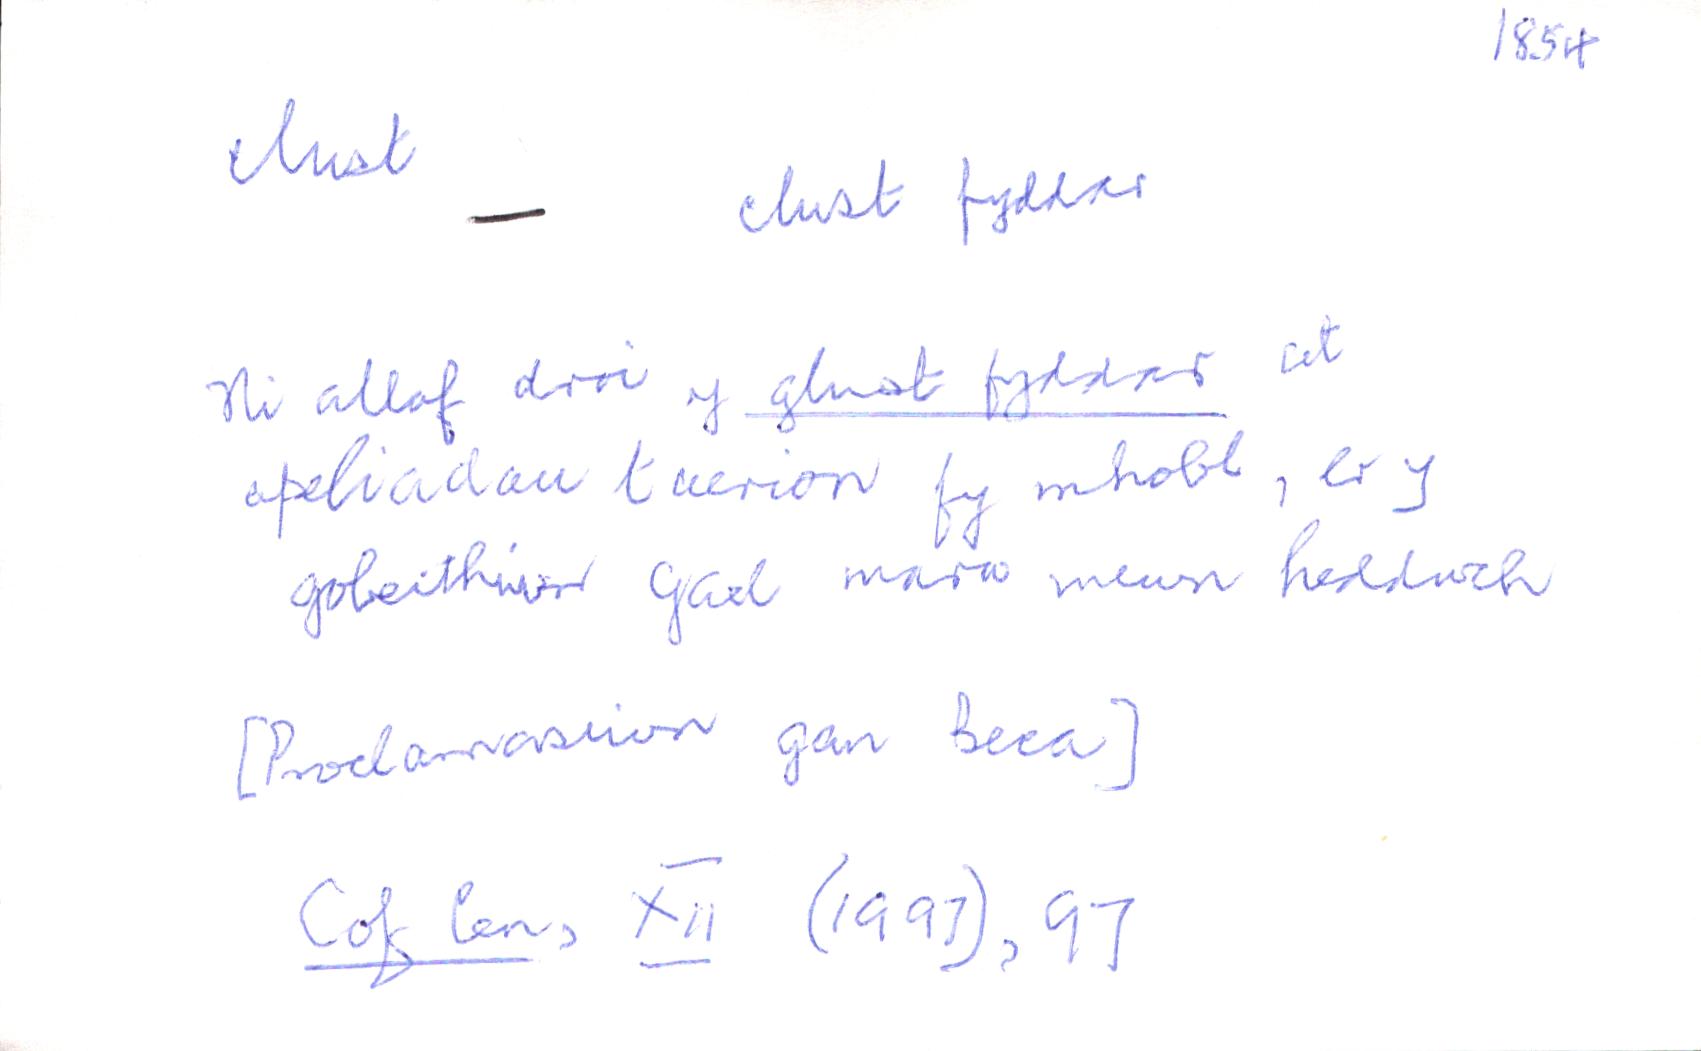 1854
clust
— clust fyddar
Ni allaf droi y glust fyddar at
apeliadau taerion fy mhobl, er y
gobeithiwn gael marw mewn heddwch
[Proclamasiwn gan Beca]
Cof Cen, XII (1997), 97